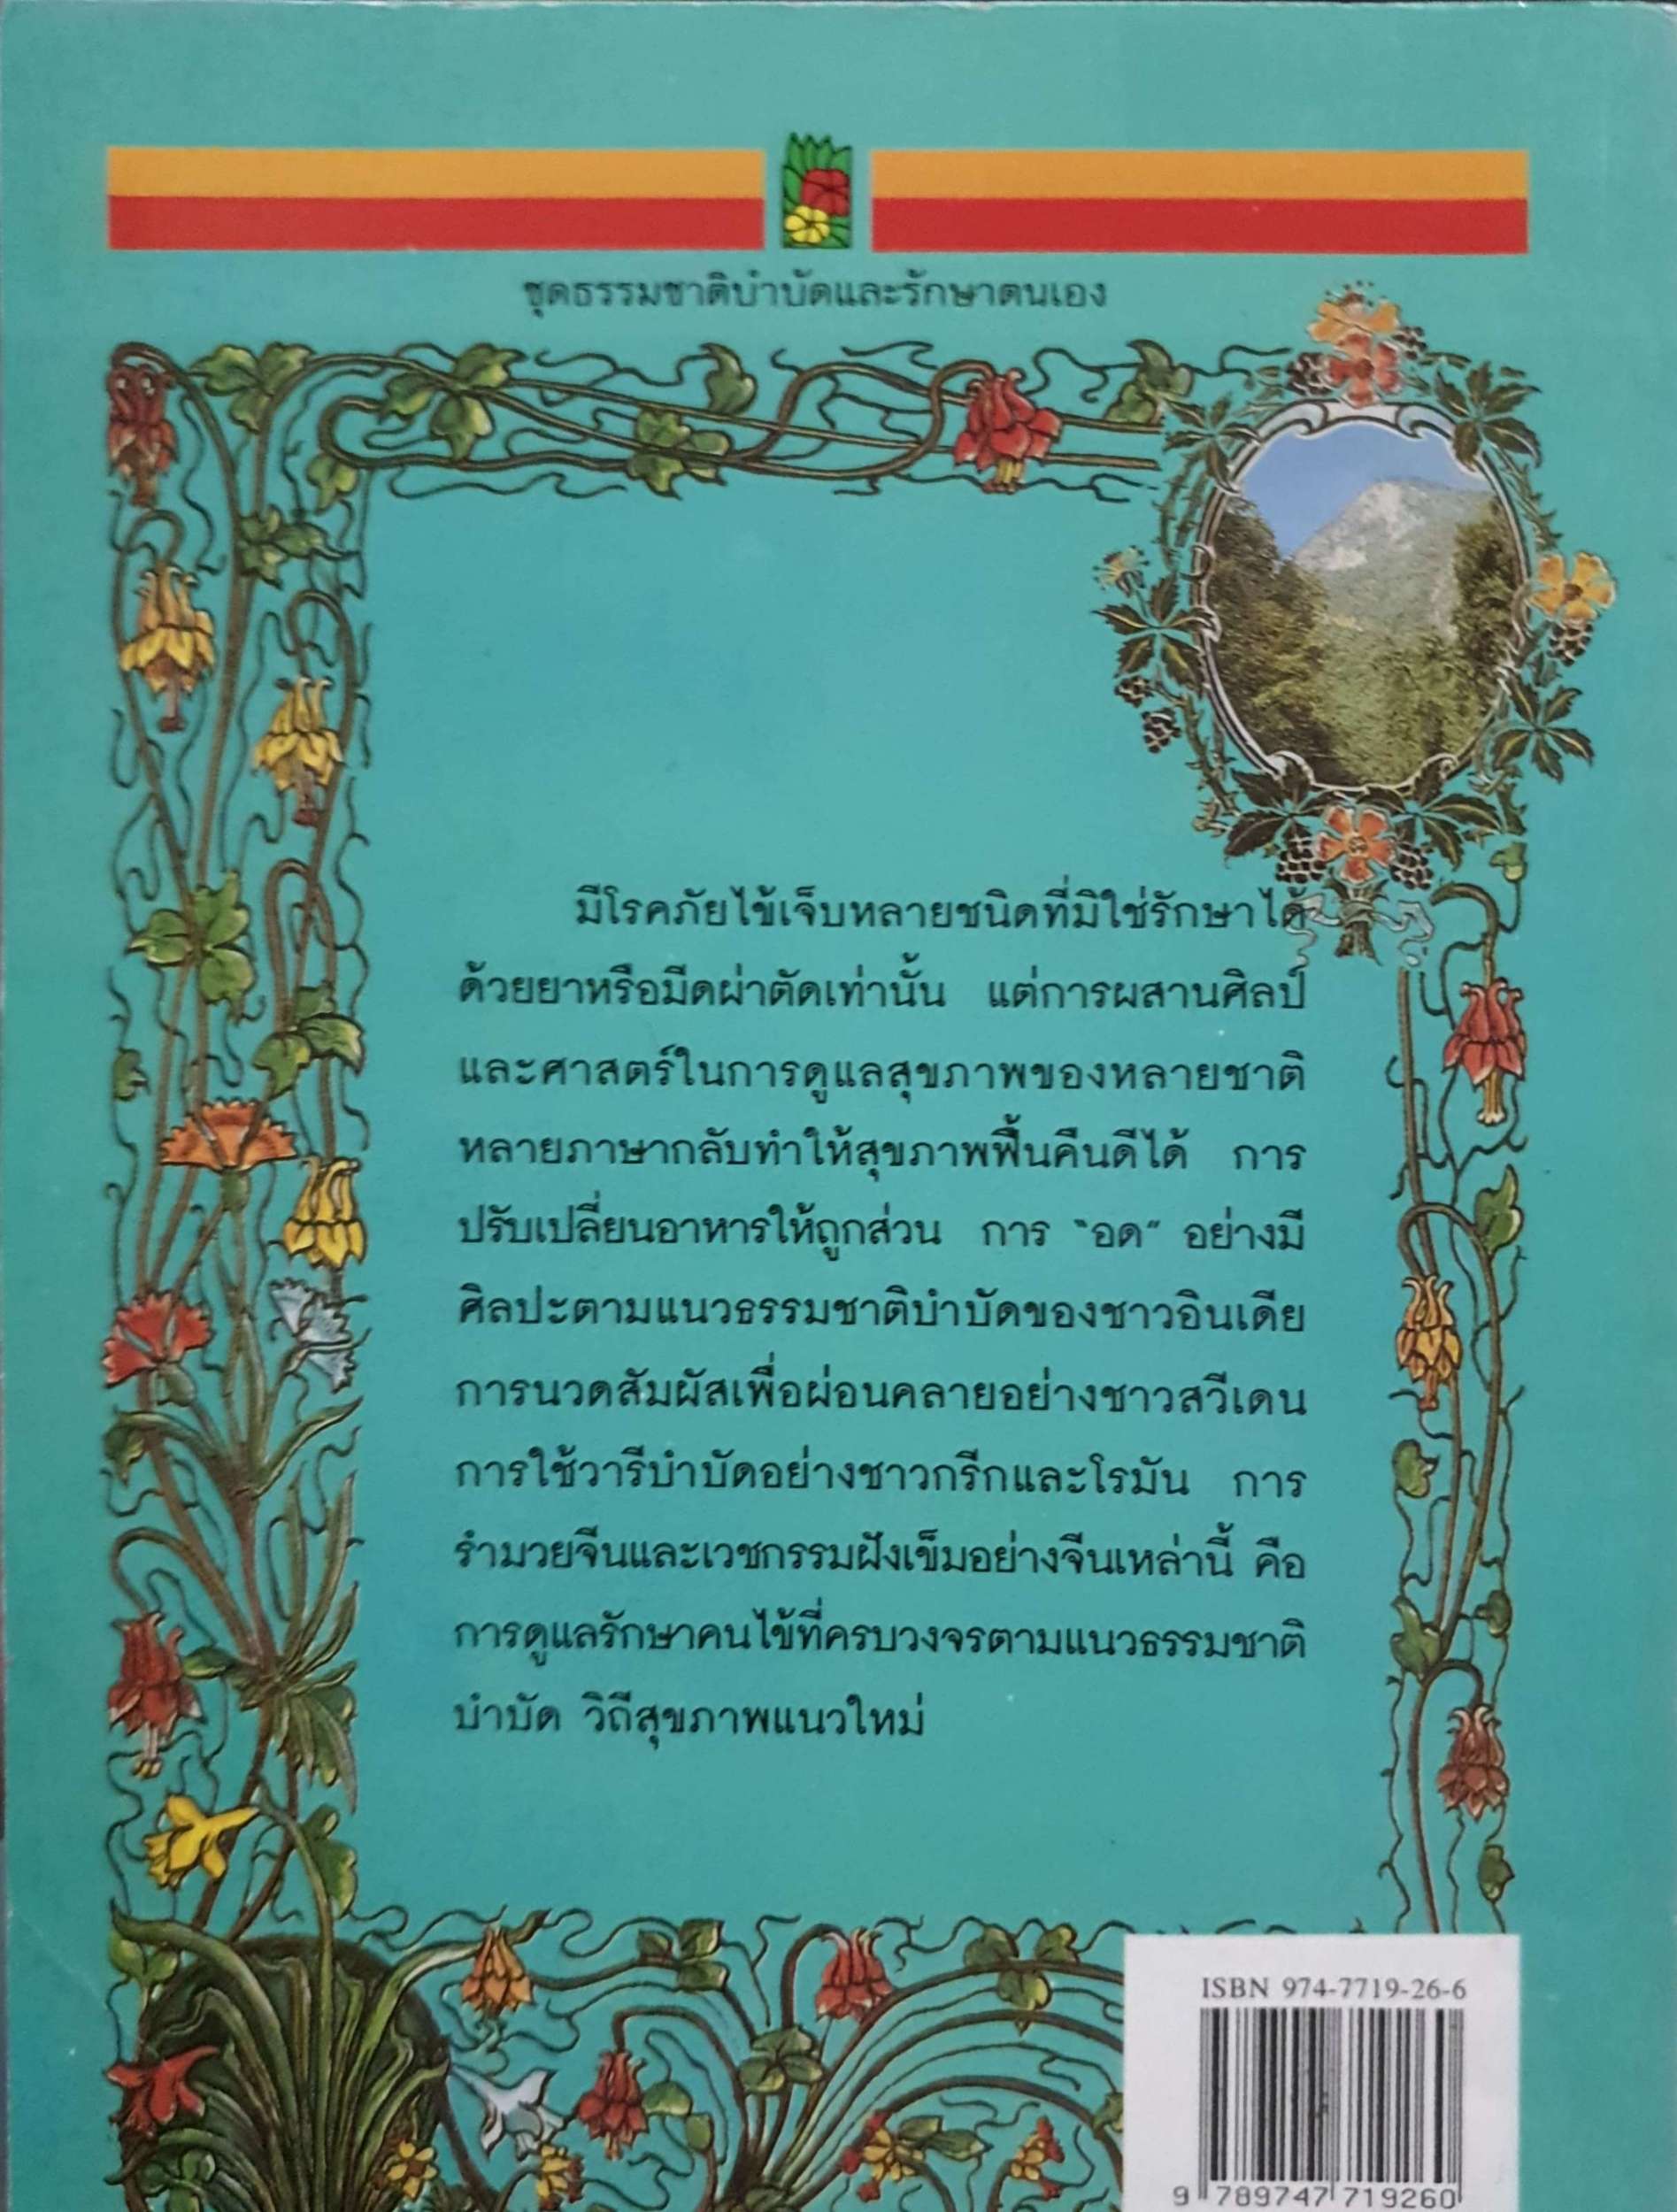 ชุดธรรมชาติบำบัดและรักษาตนเอง
มีโรคภัยไข้เจ็บหลายชนิดที่มิใช่รักษาได้
ด้วยยาหรือมีดผ่าตัดเท่านั้น แต่การผสานศิลป์
และศาสตร์ในการดูแลสุขภาพของหลายชาติ
หลายภาษากลับทำให้สุขภาพฟื้นคืนดีได้ การ
ปรับเปลี่ยนอาหารให้ถูกส่วน การ "อด" อย่างมี
ศิลปะตามแนวธรรมชาติบำบัดของชาวอินเดีย
การนวดสัมผัสเพื่อผ่อนคลายอย่างชาวสวีเดน
การใช้วารีบำบัดอย่างชาวกรีกและโรมัน การ
รำมวยจีนและเวชกรรมฝังเข็มอย่างจีนเหล่านี้ คือ
การดูแลรักษาคนไข้ที่ครบวงจรตามแนวธรรมชาติ
บำบัด วิถีสุขภาพแนวใหม่
ISBN 974-7719-26-6
9 789747 719260